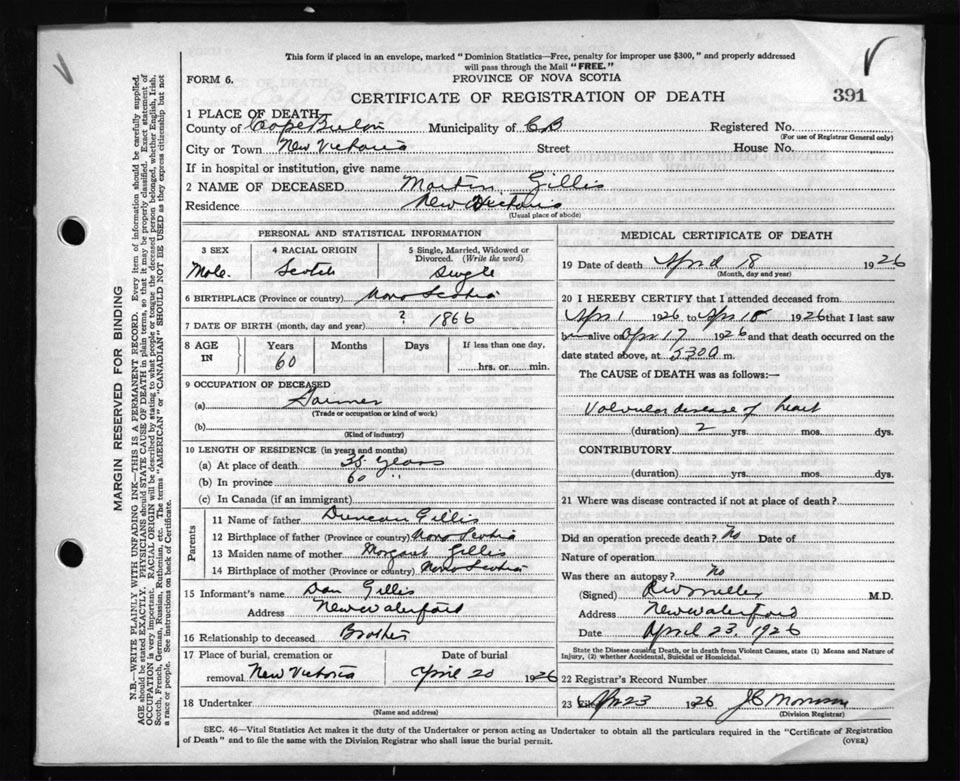 This form if placed in an envelope, marked "Dominion Statistics—Free, penalty for improper use $300," and properly addressed
will pass through the Mail "FREE."
FORM 6.
PROVINCE OF NOVA SCOTIA
CERTIFICATE OF REGISTRATION OF DEATH
391
1 PLACE OF DEATH
County of Cape Breton Municipality of CB Registered No.
(For use of Registrar General only)
City or Town New Victoria Street House No.
If in hospital or institution, give name
2 NAME OF DECEASED Martin Gillis
Residence New Victoria
(Usual place of abode)
PERSONAL AND STATISTICAL INFORMATION
3 SEX 4 RACIAL ORIGIN 5 Single, Married, Widowed or
Divorced. (Write the word)
Male. Scotch Single
6 BIRTHPLACE (Province or country) Nova Scotia
7 DATE OF BIRTH (month, day and year) ? 1866
8 AGE IN Years Months Days If less than one day,
60 hrs. or min.
9 OCCUPATION OF DECEASED
(a) Farmer
(Trade or occupation or kind of work)
(b)
(Kind of industry)
10 LENGTH OF RESIDENCE (in years and months)
(a) At place of death 38 years
(b) In province 60 "
(c) In Canada (if an immigrant)
Parents
11 Name of father Duncan Gillis
12 Birthplace of father (Province or country) Nova Scotia
13 Maiden name of mother Margaret Gillis
14 Birthplace of mother (Province or country) Nova Scotia
15 Informant's name Dan Gillis
Address New Waterford
16 Relationship to deceased Brother
17 Place of burial, cremation or Date of burial
removal New Victoria April 20 1926
18 Undertaker
(Name and address)
MEDICAL CERTIFICATE OF DEATH
19 Date of death April 18 1926
(Month, day and year)
20 I HEREBY CERTIFY that I attended deceased from
Apr 1 1926 to Apr 18 1926 that I last saw
h alive on Apr 17 1926 and that death occurred on the
date stated above, at 5300 m.
The CAUSE of DEATH was as follows:—
Valvular disease of heart
(duration) 2 yrs. mos. dys.
CONTRIBUTORY
(duration) yrs. mos. dys.
21 Where was disease contracted if not at place of death?
Did an operation precede death? No Date of
Nature of operation
Was there an autopsy? No
(Signed) M.D.
Address New Waterford
Date April 23. 1926
State the Disease causing Death, or in death from Violent Causes, state (1) Means and Nature of
Injury, (2) whether Accidental, Suicidal or Homicidal.
22 Registrar's Record Number
23 Apr 23 1926 J C Morrison
(Division Registrar)
SEC. 46—Vital Statistics Act makes it the duty of the Undertaker or person acting as Undertaker to obtain all the particulars required in the "Certificate of Registration
of Death" and to file the same with the Division Registrar who shall issue the burial permit.
(OVER)
MARGIN RESERVED FOR BINDING
N.B.—WRITE PLAINLY WITH UNFADING INK—THIS IS A PERMANENT RECORD. Every item of information should be carefully supplied.
AGE should be stated EXACTLY. PHYSICIANS should STATE CAUSE OF DEATH in plain terms, so that it may be properly classified. Exact statement of
OCCUPATION is very important. RACIAL ORIGIN will be described by stating to what people or tongue the deceased person belonged, whether English, Irish,
Scotch, French, German, Russian, Ruthenian, etc. The terms "AMERICAN" or "CANADIAN" SHOULD NOT BE USED as they express citizenship but not
a race or people. See instructions on back of Certificate.